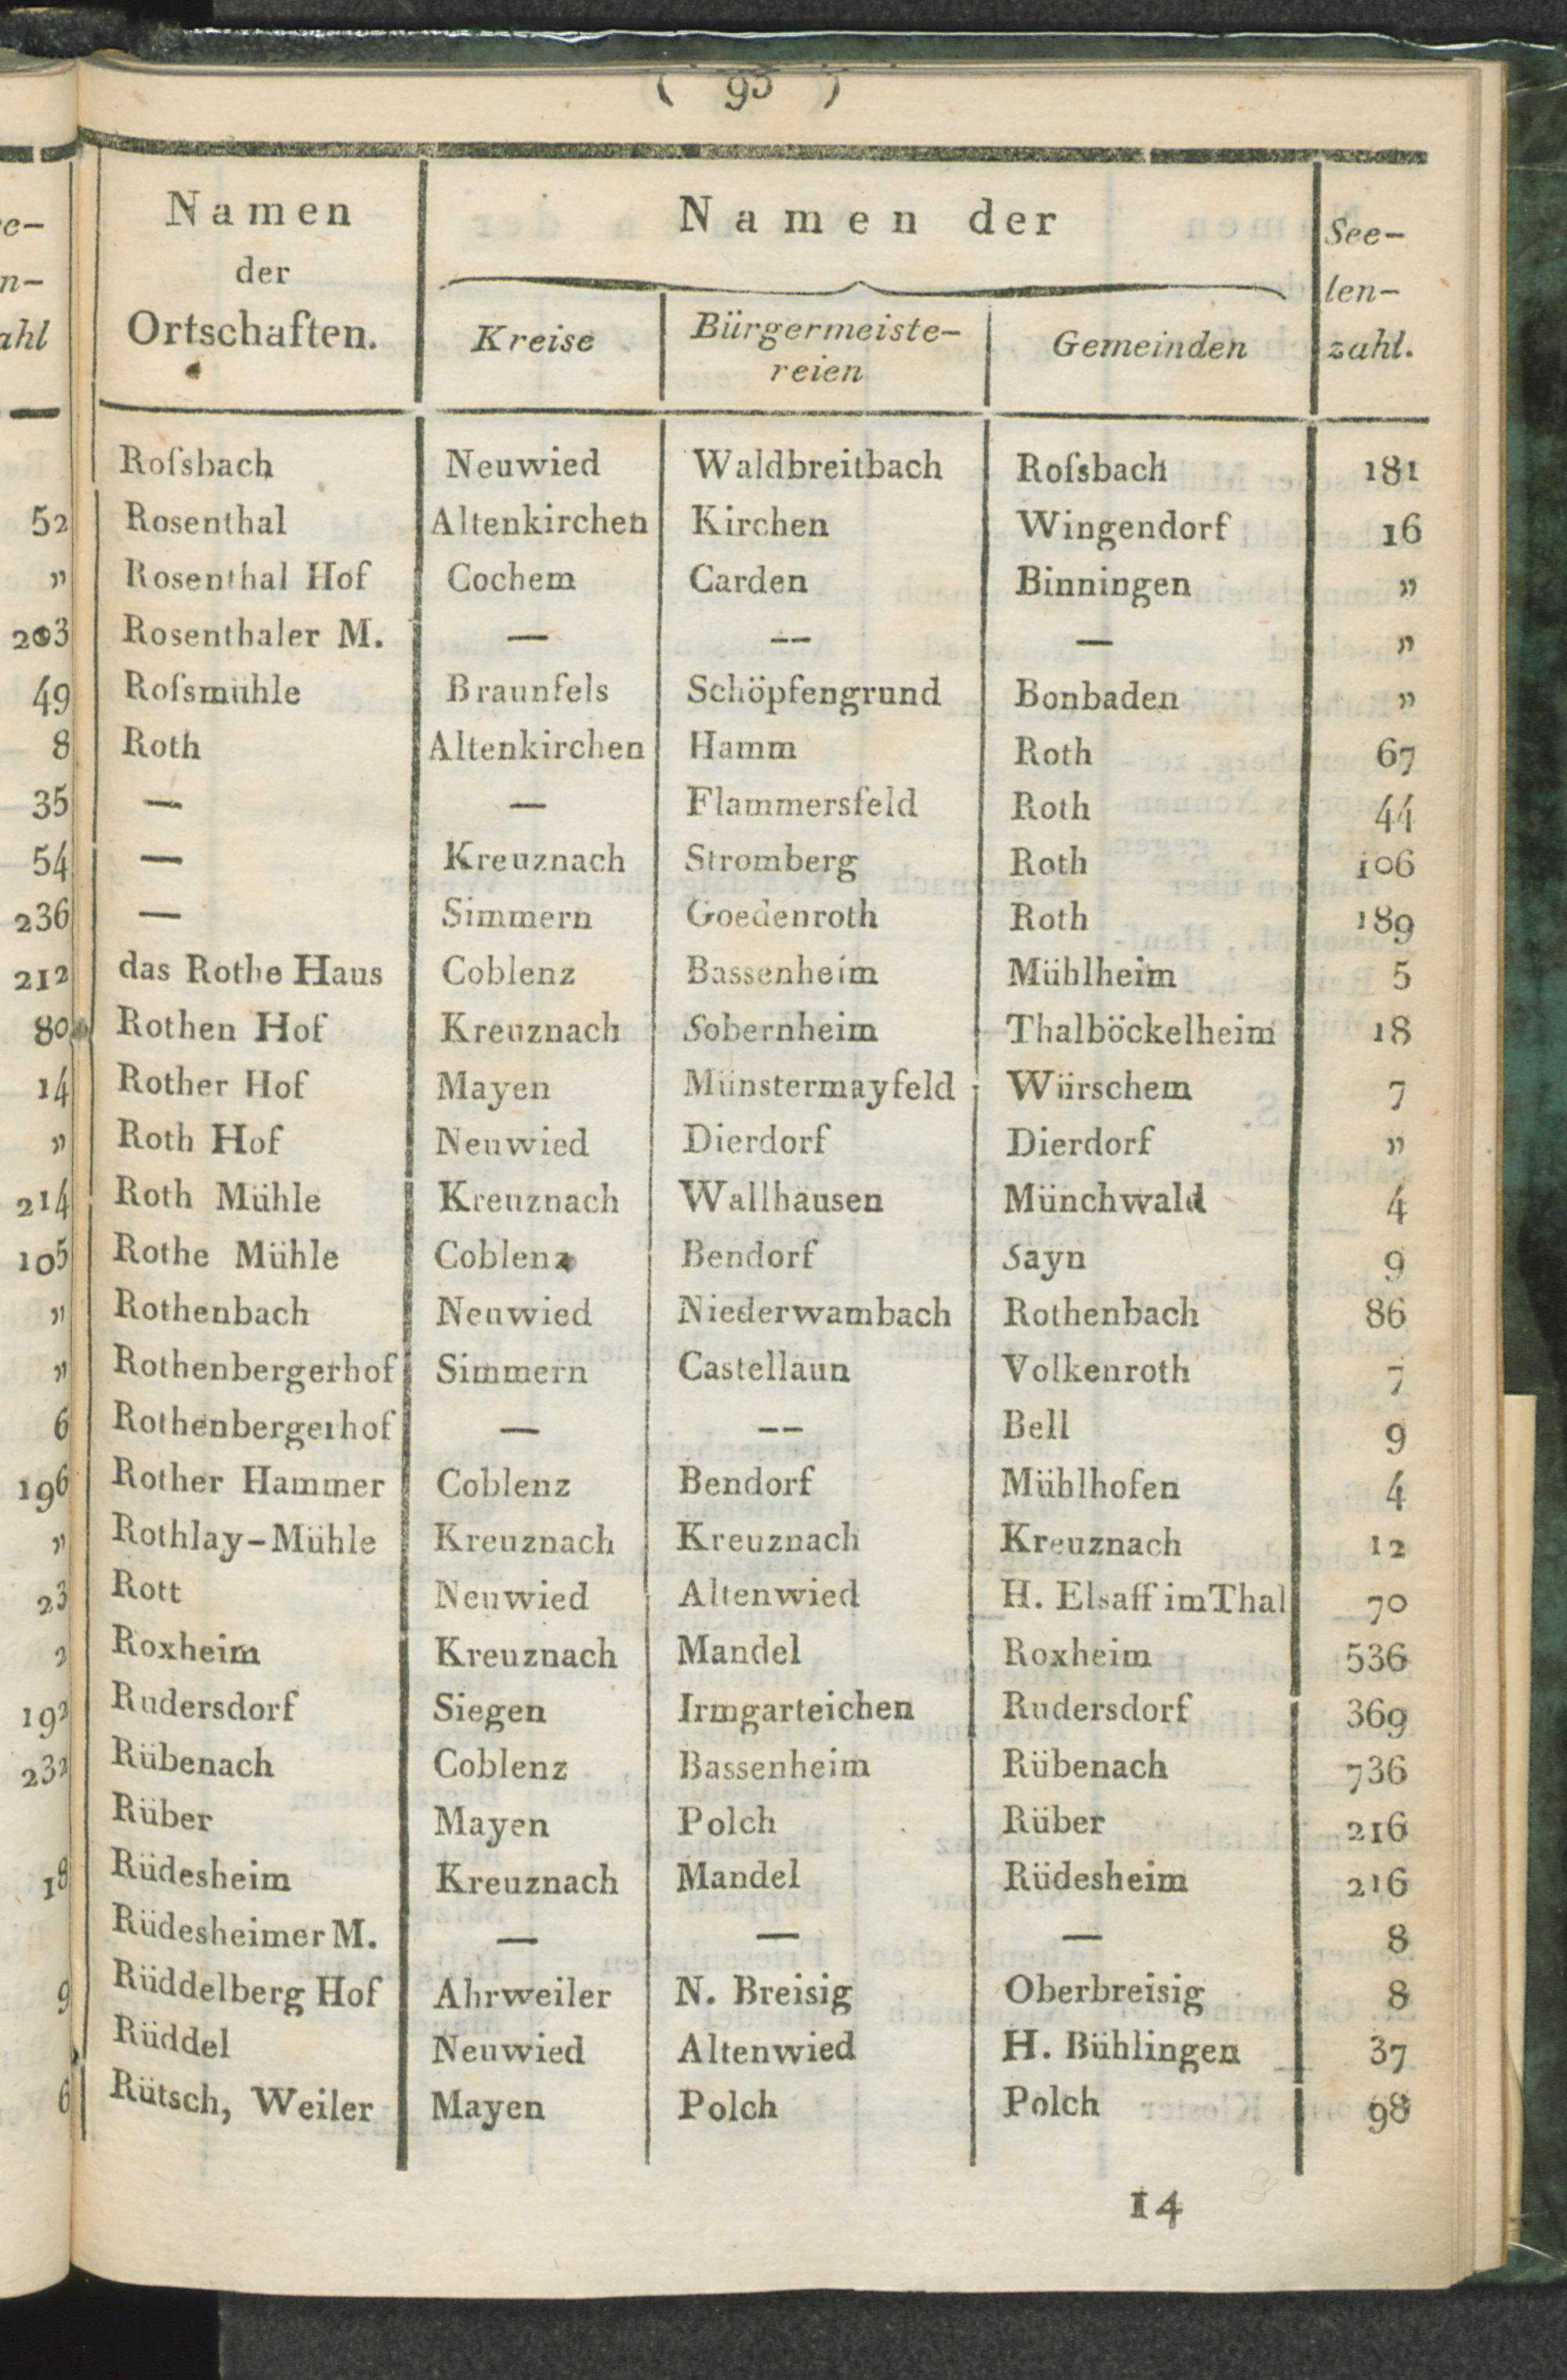 ( 95 )
Namen der Ortschaften. | Namen der Kreise | Bürgermeiste-reien | Gemeinden | See-len-zahl.
Roſsbach Neuwied Waldbreitbach Roſsbach 181
52 Rosenthal Altenkirchen Kirchen Wingendorf 16
„ Rosenthal Hof Cochem Carden Binningen „
203 Rosenthaler M. — — — „
49 Roſsmühle Braunfels Schöpfengrund Bonbaden „
8 Roth Altenkirchen Hamm Roth 67
35 — — Flammersfeld Roth 44
54 — Kreuznach Stromberg Roth 106
236 — Simmern Goedenroth Roth 189
212 das Rothe Haus Coblenz Bassenheim Mühlheim 5
80 Rothen Hof Kreuznach Sobernheim Thalböckelheim 18
14 Rother Hof Mayen Münstermayfeld Würschem 7
„ Roth Hof Neuwied Dierdorf Dierdorf „
214 Roth Mühle Kreuznach Wallhausen Münchwald 4
105 Rothe Mühle Coblenz Bendorf Sayn 9
„ Rothenbach Neuwied Niederwambach Rothenbach 86
„ Rothenbergerhof Simmern Castellaun Volkenroth 7
6 Rothenbergerhof — — Bell 9
196 Rother Hammer Coblenz Bendorf Mühlhofen 4
„ Rothlay-Mühle Kreuznach Kreuznach Kreuznach 12
23 Rott Neuwied Altenwied H. Elsaff im Thal 70
2 Roxheim Kreuznach Mandel Roxheim 536
192 Rudersdorf Siegen Irmgarteichen Rudersdorf 369
232 Rübenach Coblenz Bassenheim Rübenach 736
Rüber Mayen Polch Rüber 216
18 Rüdesheim Kreuznach Mandel Rüdesheim 216
Rüdesheimer M. — — — 8
9 Rüddelberg Hof Ahrweiler N. Breisig Oberbreisig 8
Rüddel Neuwied Altenwied H. Bühlingen 37
6 Rütsch, Weiler Mayen Polch Polch 98
14